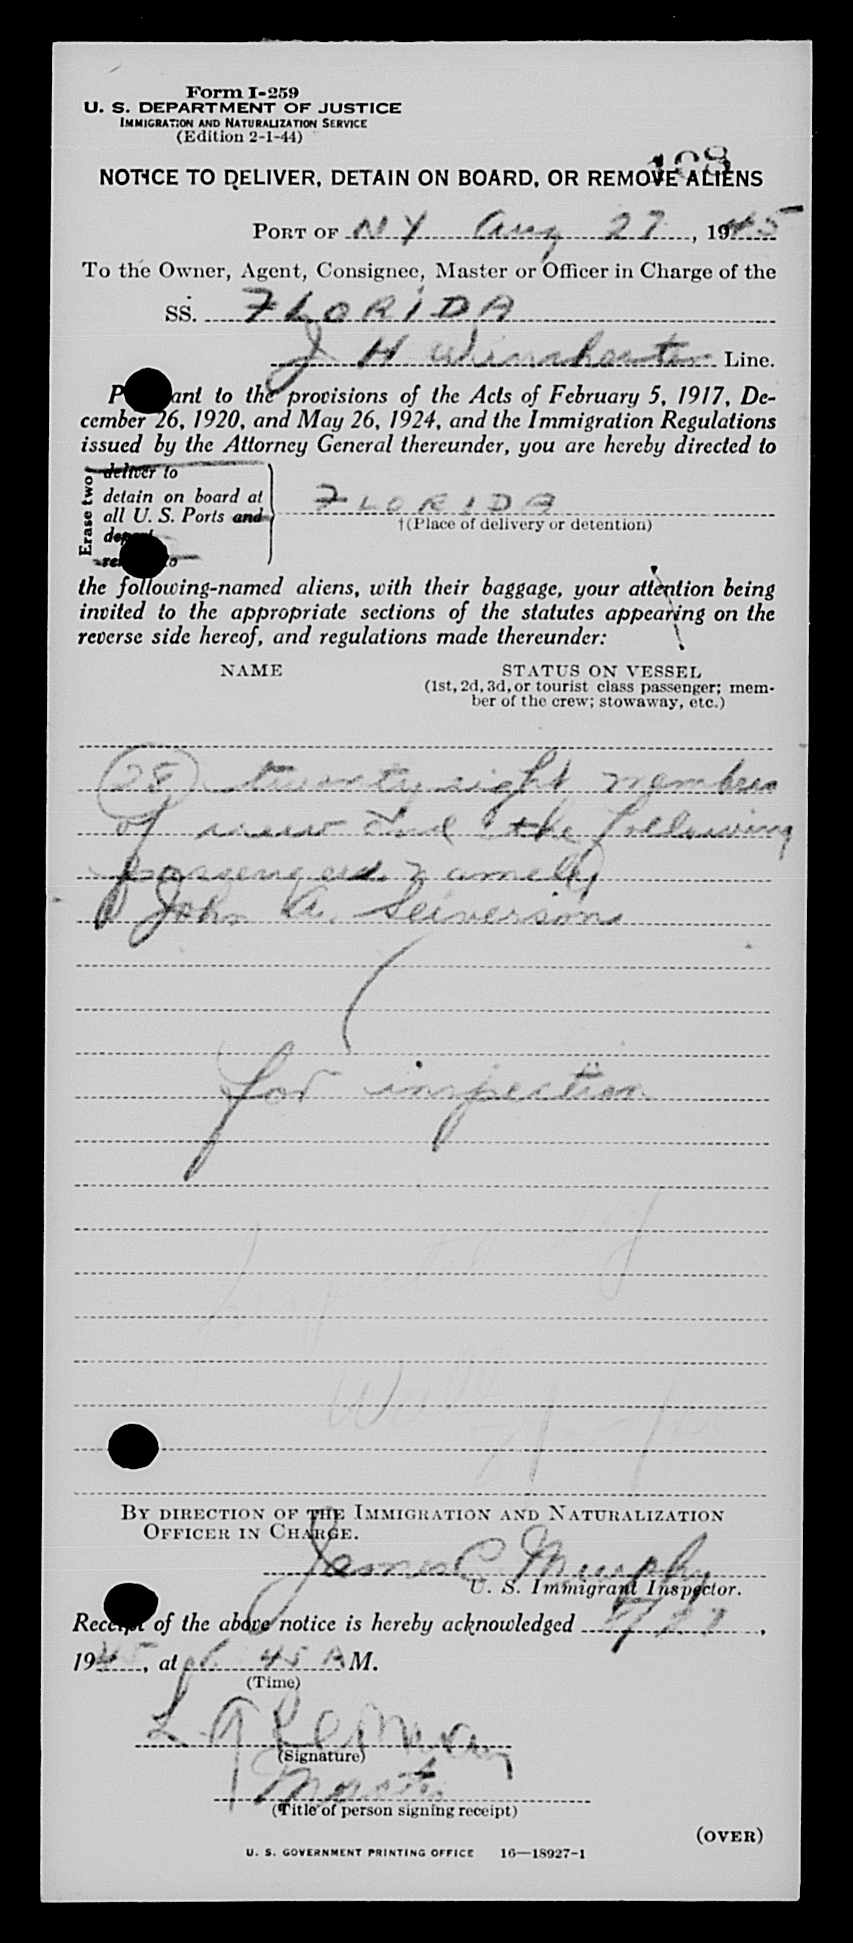 Form I-259
U. S. DEPARTMENT OF JUSTICE
IMMIGRATION AND NATURALIZATION SERVICE
(Edition 2-1-44)
108
NOTICE TO DELIVER, DETAIN ON BOARD, OR REMOVE ALIENS
PORT OF NY Aug 27, 1945
To the Owner, Agent, Consignee, Master or Officer in Charge of the
SS. FLORIDA
J H Winchester Line.
Pursuant to the provisions of the Acts of February 5, 1917, De-
cember 26, 1920, and May 26, 1924, and the Immigration Regulations
issued by the Attorney General thereunder, you are hereby directed to
Erase two
deliver to
detain on board at
all U. S. Ports and
FLORIDA
†(Place of delivery or detention)
the following-named aliens, with their baggage, your attention being
invited to the appropriate sections of the statutes appearing on the
reverse side hereof, and regulations made thereunder:
NAME STATUS ON VESSEL
(1st, 2d, 3d, or tourist class passenger; mem-
ber of the crew; stowaway, etc.)
(28) twenty eight members
of crew and the following
passengers, namely
John A. Seiverson
for inspection
BY DIRECTION OF THE IMMIGRATION AND NATURALIZATION
OFFICER IN CHARGE.
James C Murphy
U. S. Immigrant Inspector.
Receipt of the above notice is hereby acknowledged 8/27,
1945, at 45 A M.
(Time)
(Signature)
Master
(Title of person signing receipt)
(OVER)
U. S. GOVERNMENT PRINTING OFFICE 16—18927-1